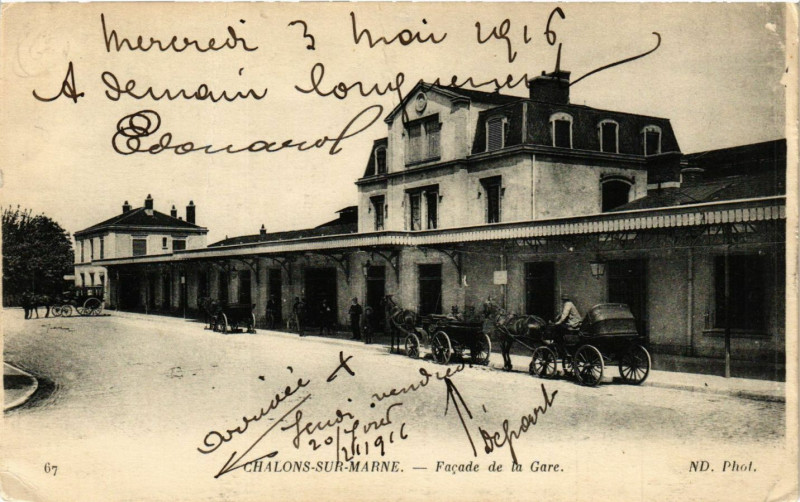 Mercredi 3 mai 1916
A demain longuement
Edouard
arrivée X
Jeudi vendredi
20/Août
21 1916
Départ
67
CHALONS-SUR-MARNE. — Façade de la Gare.
ND. Phot.